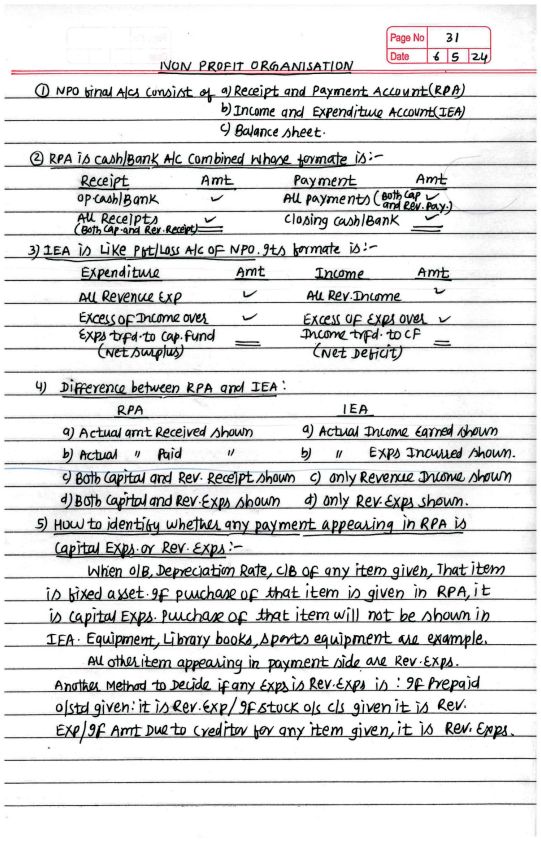 Page No 31
Date 6 5 24
NON PROFIT ORGANISATION
① NPO final A/cs consist of a) Receipt and Payment Account (RPA)
b) Income and Expenditure Account (IEA)
c) Balance sheet.
② RPA is cash/Bank A/c combined whose formate is:-
Receipt Amt Payment Amt
op cash/Bank ✓ All payments (Both Cap and Rev. Pay.) ✓
All Receipts ✓ Closing Cash/Bank ✓
(Both Cap. and Rev. Receipt)
3) IEA is Like Pft/Loss A/c OF NPO. Its formate is:-
Expenditure Amt Income Amt
All Revenue Exp ✓ All Rev. Income ✓
Excess of Income over ✓ Excess of Exps over ✓
Exps trfd. to Cap. fund Income trfd. to CF
(Net surplus) (Net Deficit)
4) Difference between RPA and IEA:
RPA IEA
a) Actual amt Received shown a) Actual Income Earned shown
b) Actual " Paid " b) " Exps Incurred shown.
c) Both Capital and Rev. Receipt shown c) only Revenue Income shown
d) Both Capital and Rev. Exps shown d) only Rev. Exps shown.
5) How to identify whether any payment appearing in RPA is
Capital Exps. or Rev. Exps:-
When O/B, Depreciation Rate, C/B of any item given, That item
is fixed asset. If purchase of that item is given in RPA, it
is capital Exps. Purchase of that item will not be shown in
IEA. Equipment, Library books, sports equipment are example.
All other item appearing in payment side are Rev. Exps.
Another Method to Decide if any Exps is Rev. Exps is : If Prepaid
o/std given: it is Rev. Exp/If stuck o/s c/s given it is Rev.
Exp/If Amt Due to Creditor for any item given, it is Rev. Exps.